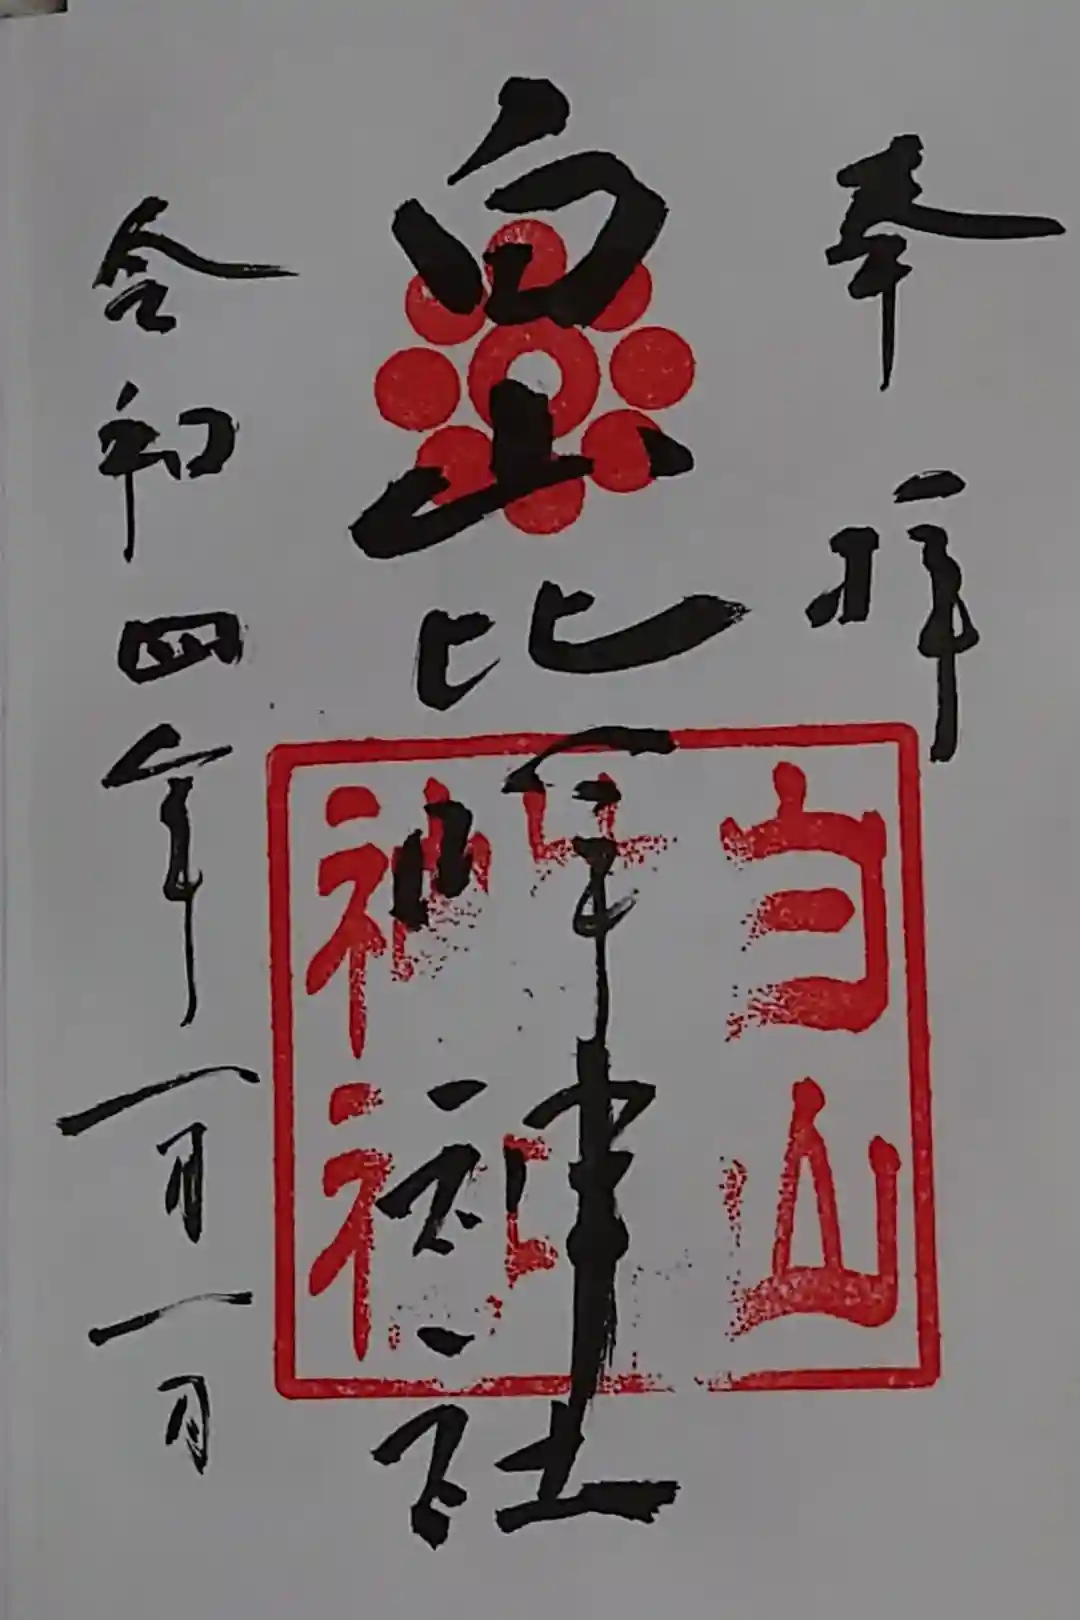 奉拝
白山比咩神社
令和四年一月一日
白山
神社